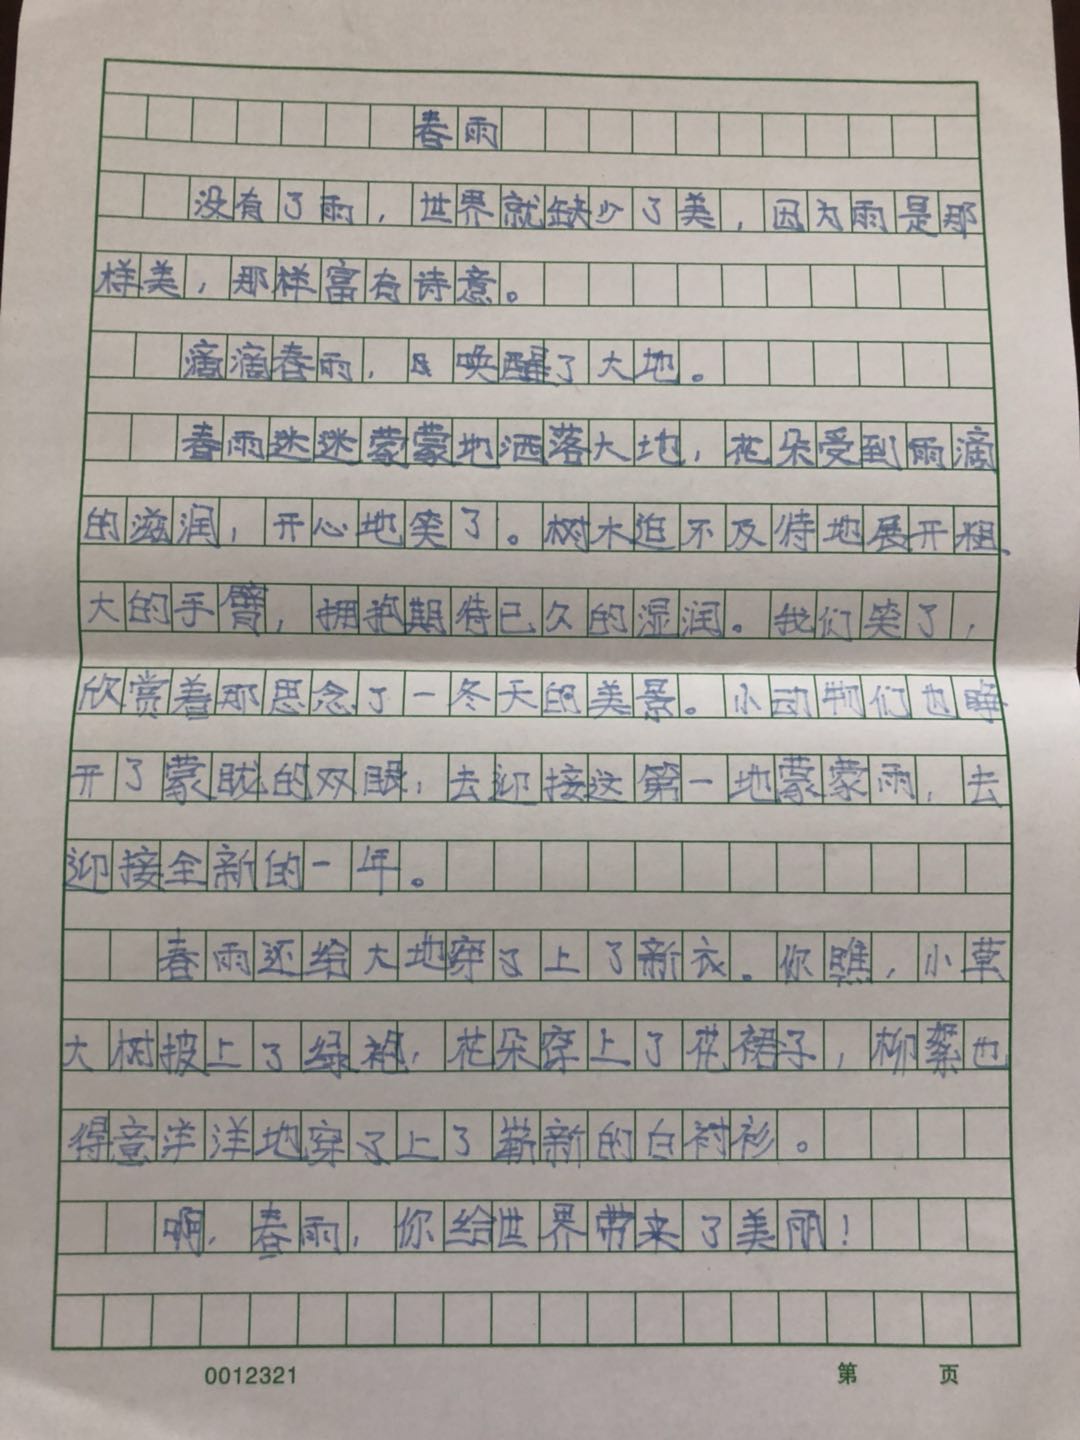 春雨
没有了雨，世界就缺少了美，因为雨是那
样美，那样富有诗意。
滴滴春雨，唤醒了大地。
春雨迷迷蒙蒙地洒落大地，花朵受到雨滴
的滋润，开心地笑了。树木迫不及待地展开粗
大的手臂，拥抱期待已久的湿润。我们笑了，
欣赏着那思念了一冬天的美景。小动物们也睁
开了蒙眬的双眼，去迎接这第一地蒙蒙雨，去
迎接全新的一年。
春雨还给大地穿了上了新衣。你瞧，小草
大树披上了绿袍，花朵穿上了花裙子，柳絮也
得意洋洋地穿了上了崭新的白衬衫。
啊，春雨，你给世界带来了美丽！
0012321
第 页